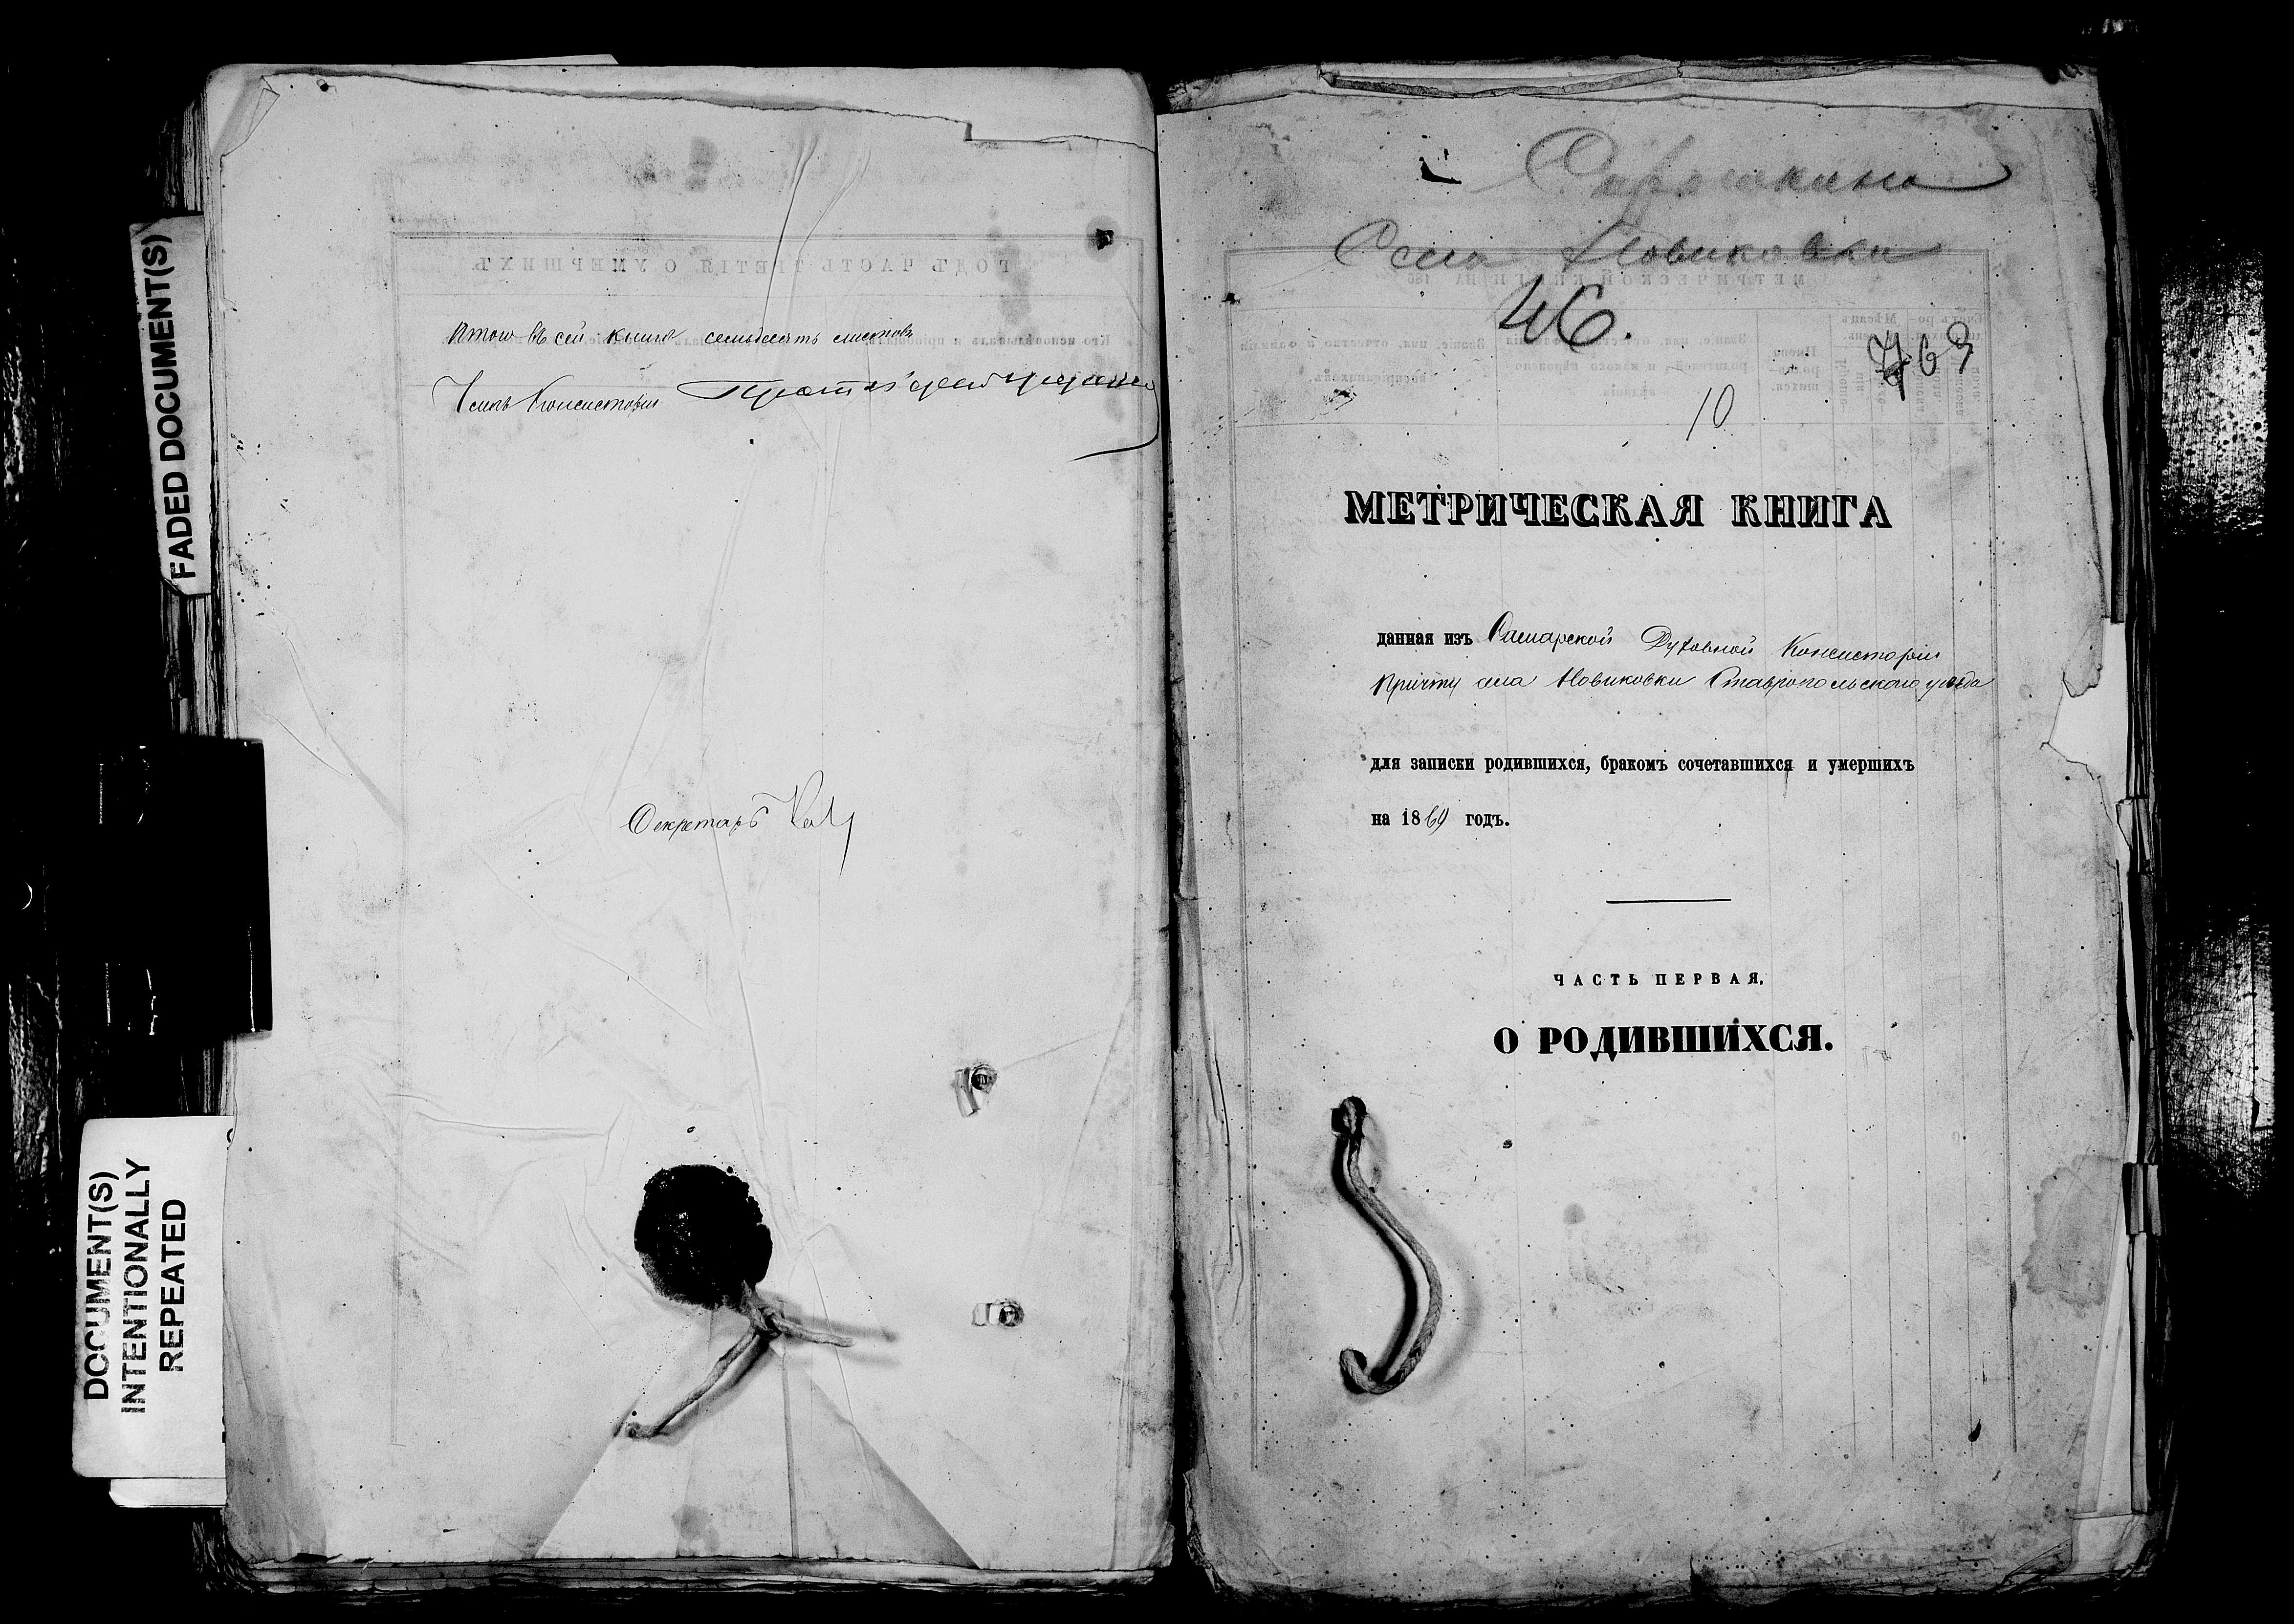 FADED DOCUMENT(S)
DOCUMENT(S)
INTENTIONALLY
REPEATED
ГОДЪ ЧАСТЬ ТРЕТІЯ О УМЕРШИХЪ
Итого въ сей книгѣ семьдесятъ листовъ
Членъ Консисторіи
Секретарь
Села Новиковки
46.
763
10
МЕТРИЧЕСКАЯ КНИГА
данная изъ Самарской Духовной Консисторіи
Причту села Новиковки Ставропольского уѣзда
для записки родившихся, бракомъ сочетавшихся и умершихъ
на 1869 годъ.
ЧАСТЬ ПЕРВАЯ,
О РОДИВШИХСЯ.